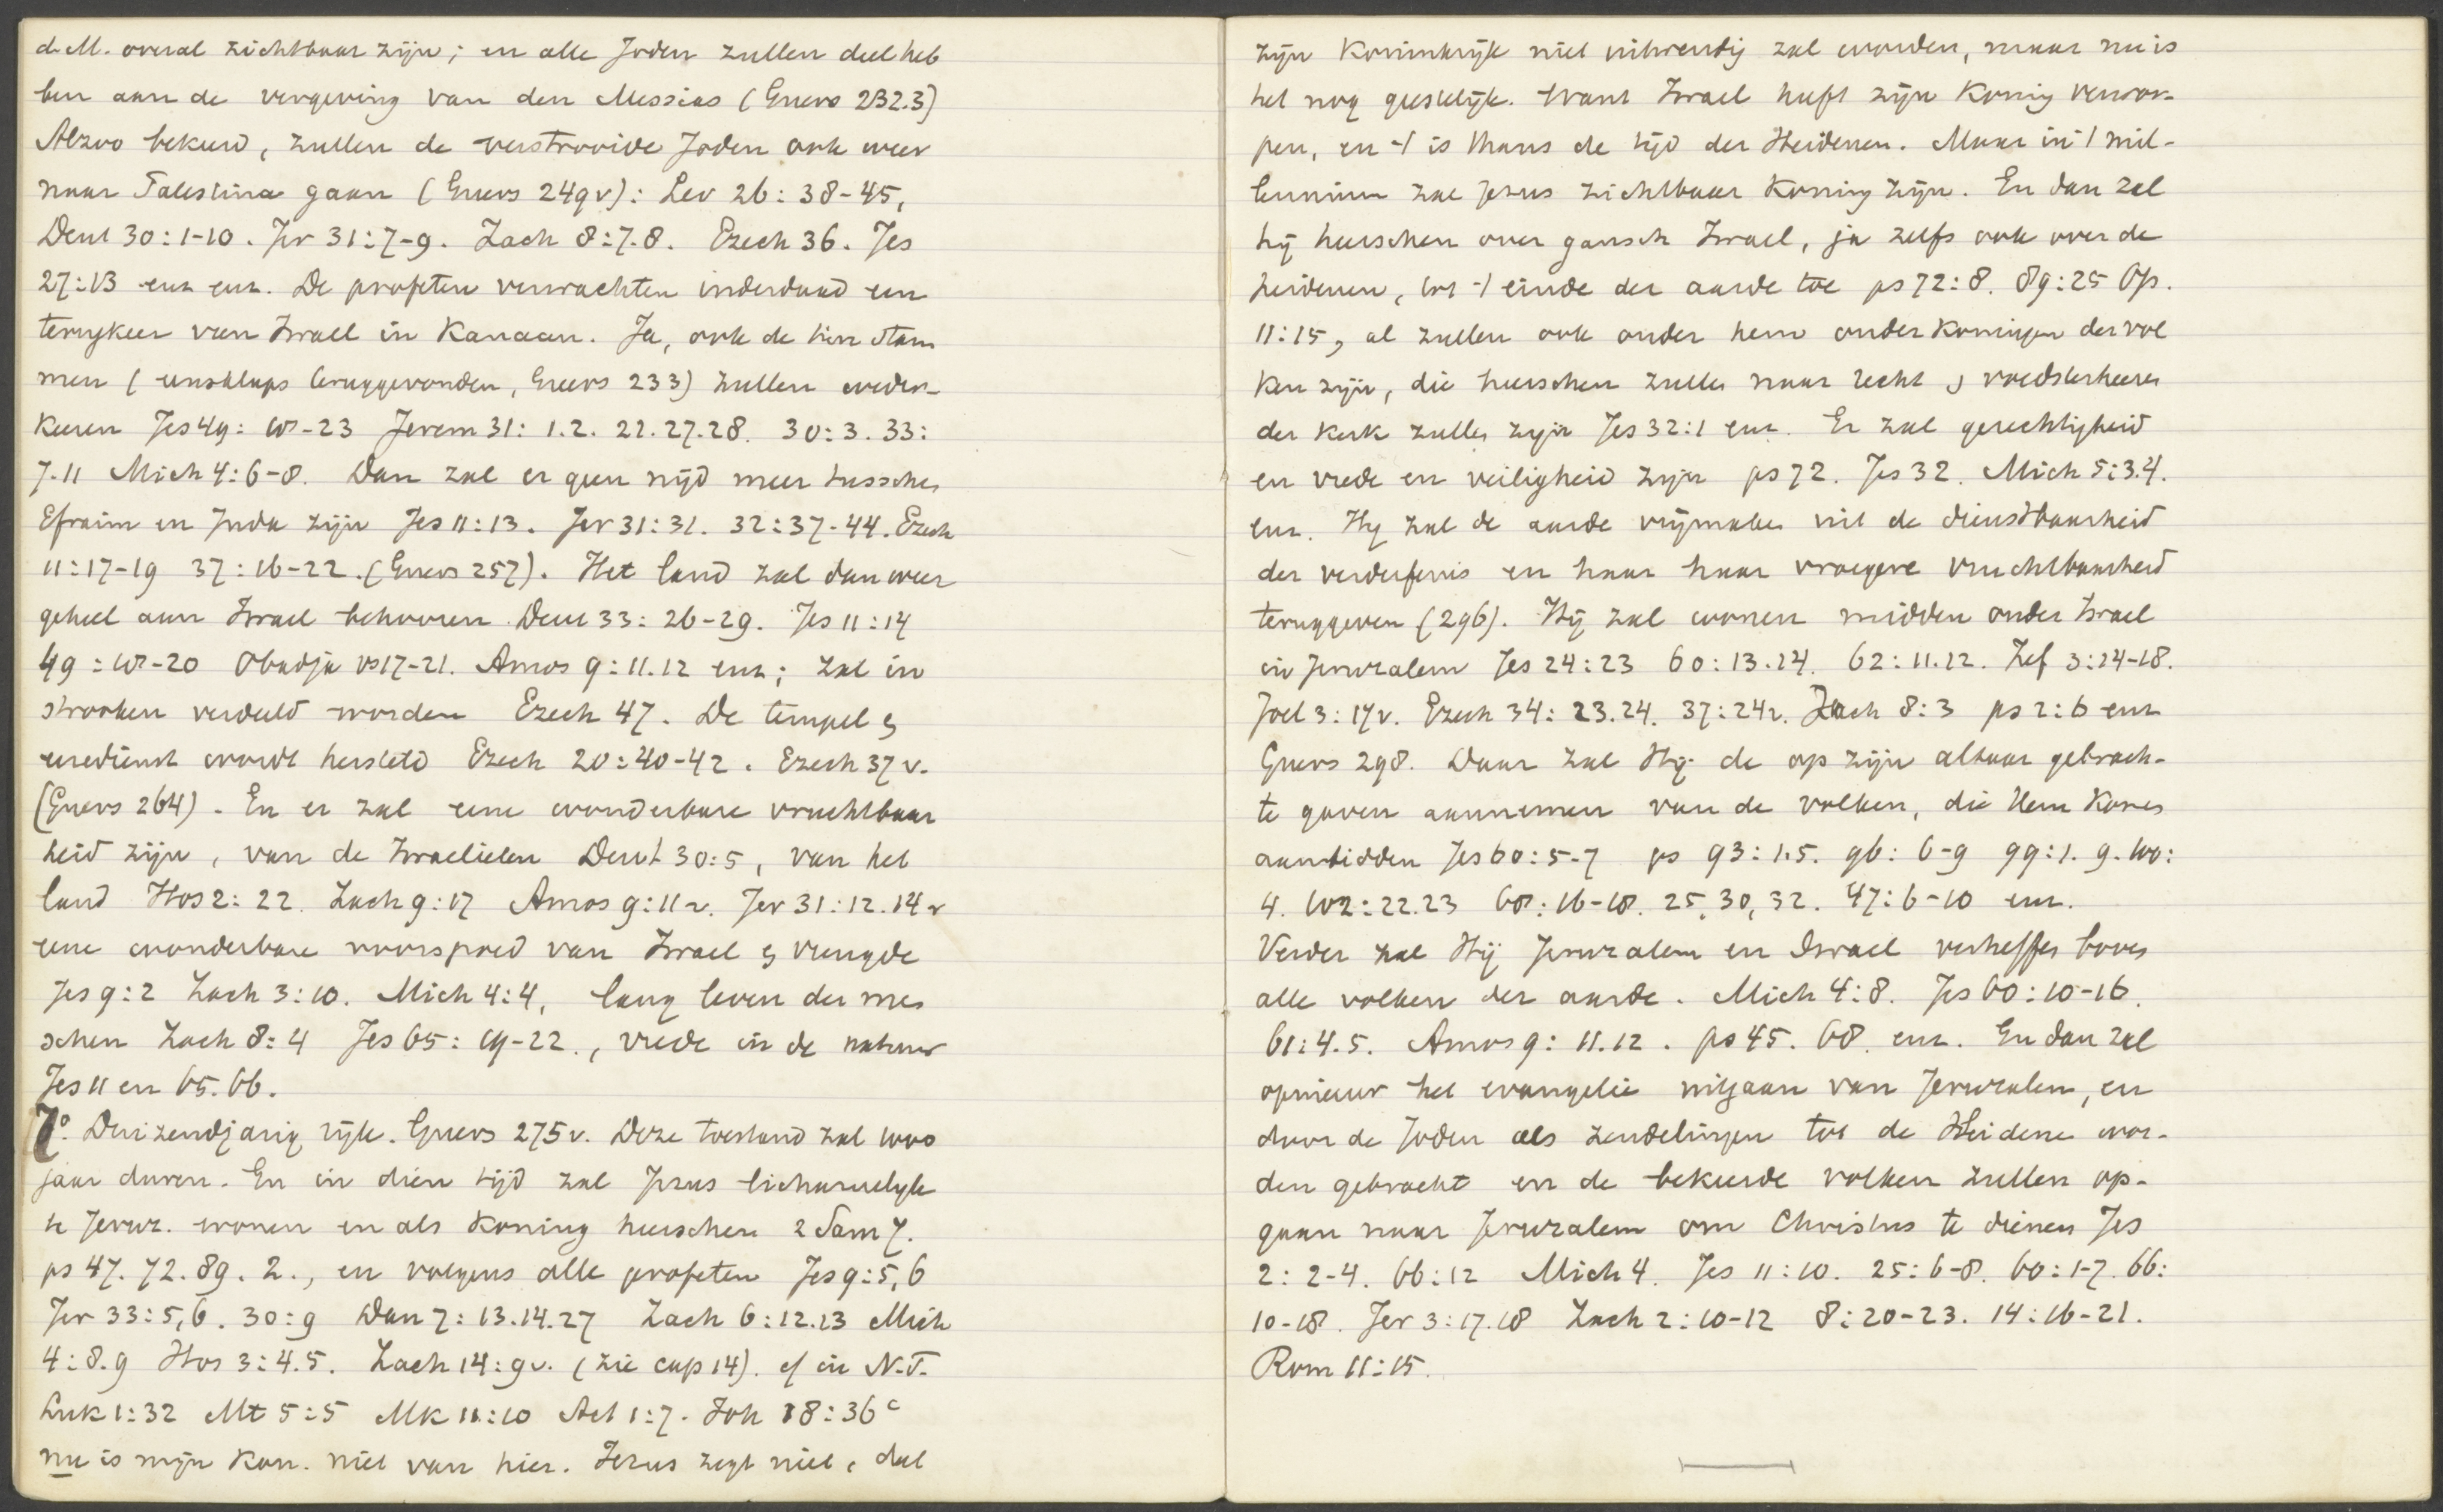 d. M. overal zichtbaar zijn; en alle Joden zullen deel heb
ben aan de vergeving van den Messias (Guers 232.3)
Alzoo bekeerd, zullen de verstrooide Joden ook weer
naar Palestina gaan (Guers 249v): Lev 26: 38-45,
Deut 30:1-10. Jer 31:7-9. Zach 8:7.8. Ezech 36. Jes
27:13 enz enz. De profeten verwachten inderdaad een
terugkeer van Israel in Kanaan. Ja, ook de tien stam
men (eensklaps teruggevonden, Guers 233) zullen weder-
keeren Jes 49: 18-23 Jerem 31: 1.2. 22.27.28. 30:3. 33:
7-11 Mich 4:6-8. Dan zal er geen nijd meer tusschen
Efraim en Juda zijn Jes 11:13. Jer 31:31. 32:37-44. Ezech
11:17-19 37:16-22. (Guers 257). Het land zal dan weer
geheel aan Israel behooren Deut 33: 26-29. Jes 11:14
49:18-20 Obadja vs 17-21. Amos 9:11.12 enz; zal in
strooken verdeeld worden Ezech 47. De tempel &
eeredienst wordt hersteld Ezech 20:40-42. Ezech 37 v.
(Guers 264). En er zal eene wonderbare vruchtbaar
heid zijn, van de Israelieten Deut 30:5, van het
land Hos 2:22. Zach 9:17 Amos 9:11 v. Jer 31:12.14 v
eene wonderbare voorspoed van Israel & vreugde
Jes 9:2 Zach 3:10. Mich 4:4, lang leven der men
schen Zach 8:4 Jes 65: 19-22., vrede in de natuur
Jes 11 en 65.66.
7°. Duizendjarig rijk. Guers 275v. Deze toestand zal 1000
jaar duren. En in dien tijd zal Jezus lichamelyk
te Jeruz. wonen en als Koning heerschen 2 Sam 7.
ps 47. 72. 89. 2., en volgens alle profeten Jes 9:5,6
Jer 33:5,6. 30:9 Dan 7: 13.14.27 Zach 6:12.13 Mich
4:8.9 Hos 3:4.5. Zach 14:9v. (zie cap 14). cf in N.T.
Luk 1:32 Mt 5:5 Mk 11:10 Act 1:7. Joh 18:36c
nu is mijn Kon. niet van hier. Jezus zegt niet, dat
zijn Koninkrijk niet uitwendig zal worden, maar nu is
het nog geestelijk. Want Israel heeft zijn Koning verwor-
pen, en 't is thans de tijd der Heidenen. Maar in 't mil-
lennium zal Jezus zichtbaar Koning zijn. En dan zal
hij heerschen over gansch Israel, ja zelfs ook over de
heidenen, tot 't einde der aarde toe ps 72:8. 89:25 Op.
11:15, al zullen ook onder hem onder Koningen der vol
ken zijn, die heerschen zullen naar recht & voedsterheeren
der Kerk zullen zijn Jes 32:1 enz. Er zal gerechtigheid
en vrede en veiligheid zijn ps 72. Jes 32. Mich 5:3.4.
enz. Hy zal de aarde vrijmaken uit de dienstbaarheid
der verderfenis en haar haar vroegere vruchtbaarheid
teruggeven (296). Hij zal wonen midden onder Israel
in Jeruzalem Jes 24:23 60:13.14. 62:11.12. Zef 3:14-18.
Joel 3:17v. Ezech 34: 23.24. 37:24v. Zach 8:3 ps 2:6 enz
Guers 298. Daar zal Hij de op zijn altaar gebrach-
te gaven aannemen van de volken, die Hem Komen
aanbidden Jes 60:5-7 ps 93:1.5. 96: 6-9 99:1. 9. 100:
4. 102:22.23 68:16-18. 25,30,32. 47:6-10 enz.
Verder zal Hij Jeruzalem en Israel verheffen boven
alle volken der aarde. Mich 4:8. Jes 60:10-16.
61:4.5. Amos 9: 11.12. ps 45. 68. enz. En dan zal
opnieuw het evangelie uitgaan van Jeruzalem, en
door de Joden als zendelingen tot de Heidene wor-
den gebracht en de bekeerde volken zullen op-
gaan naar Jeruzalem om Christus te dienen Jes
2: 2-4. 66:12 Mich 4. Jes 11:10. 25:6-8. 60:1-7. 66:
10-18. Jer 3:17.18 Zach 2:10-12 8:20-23. 14:16-21.
Rom 11:15.